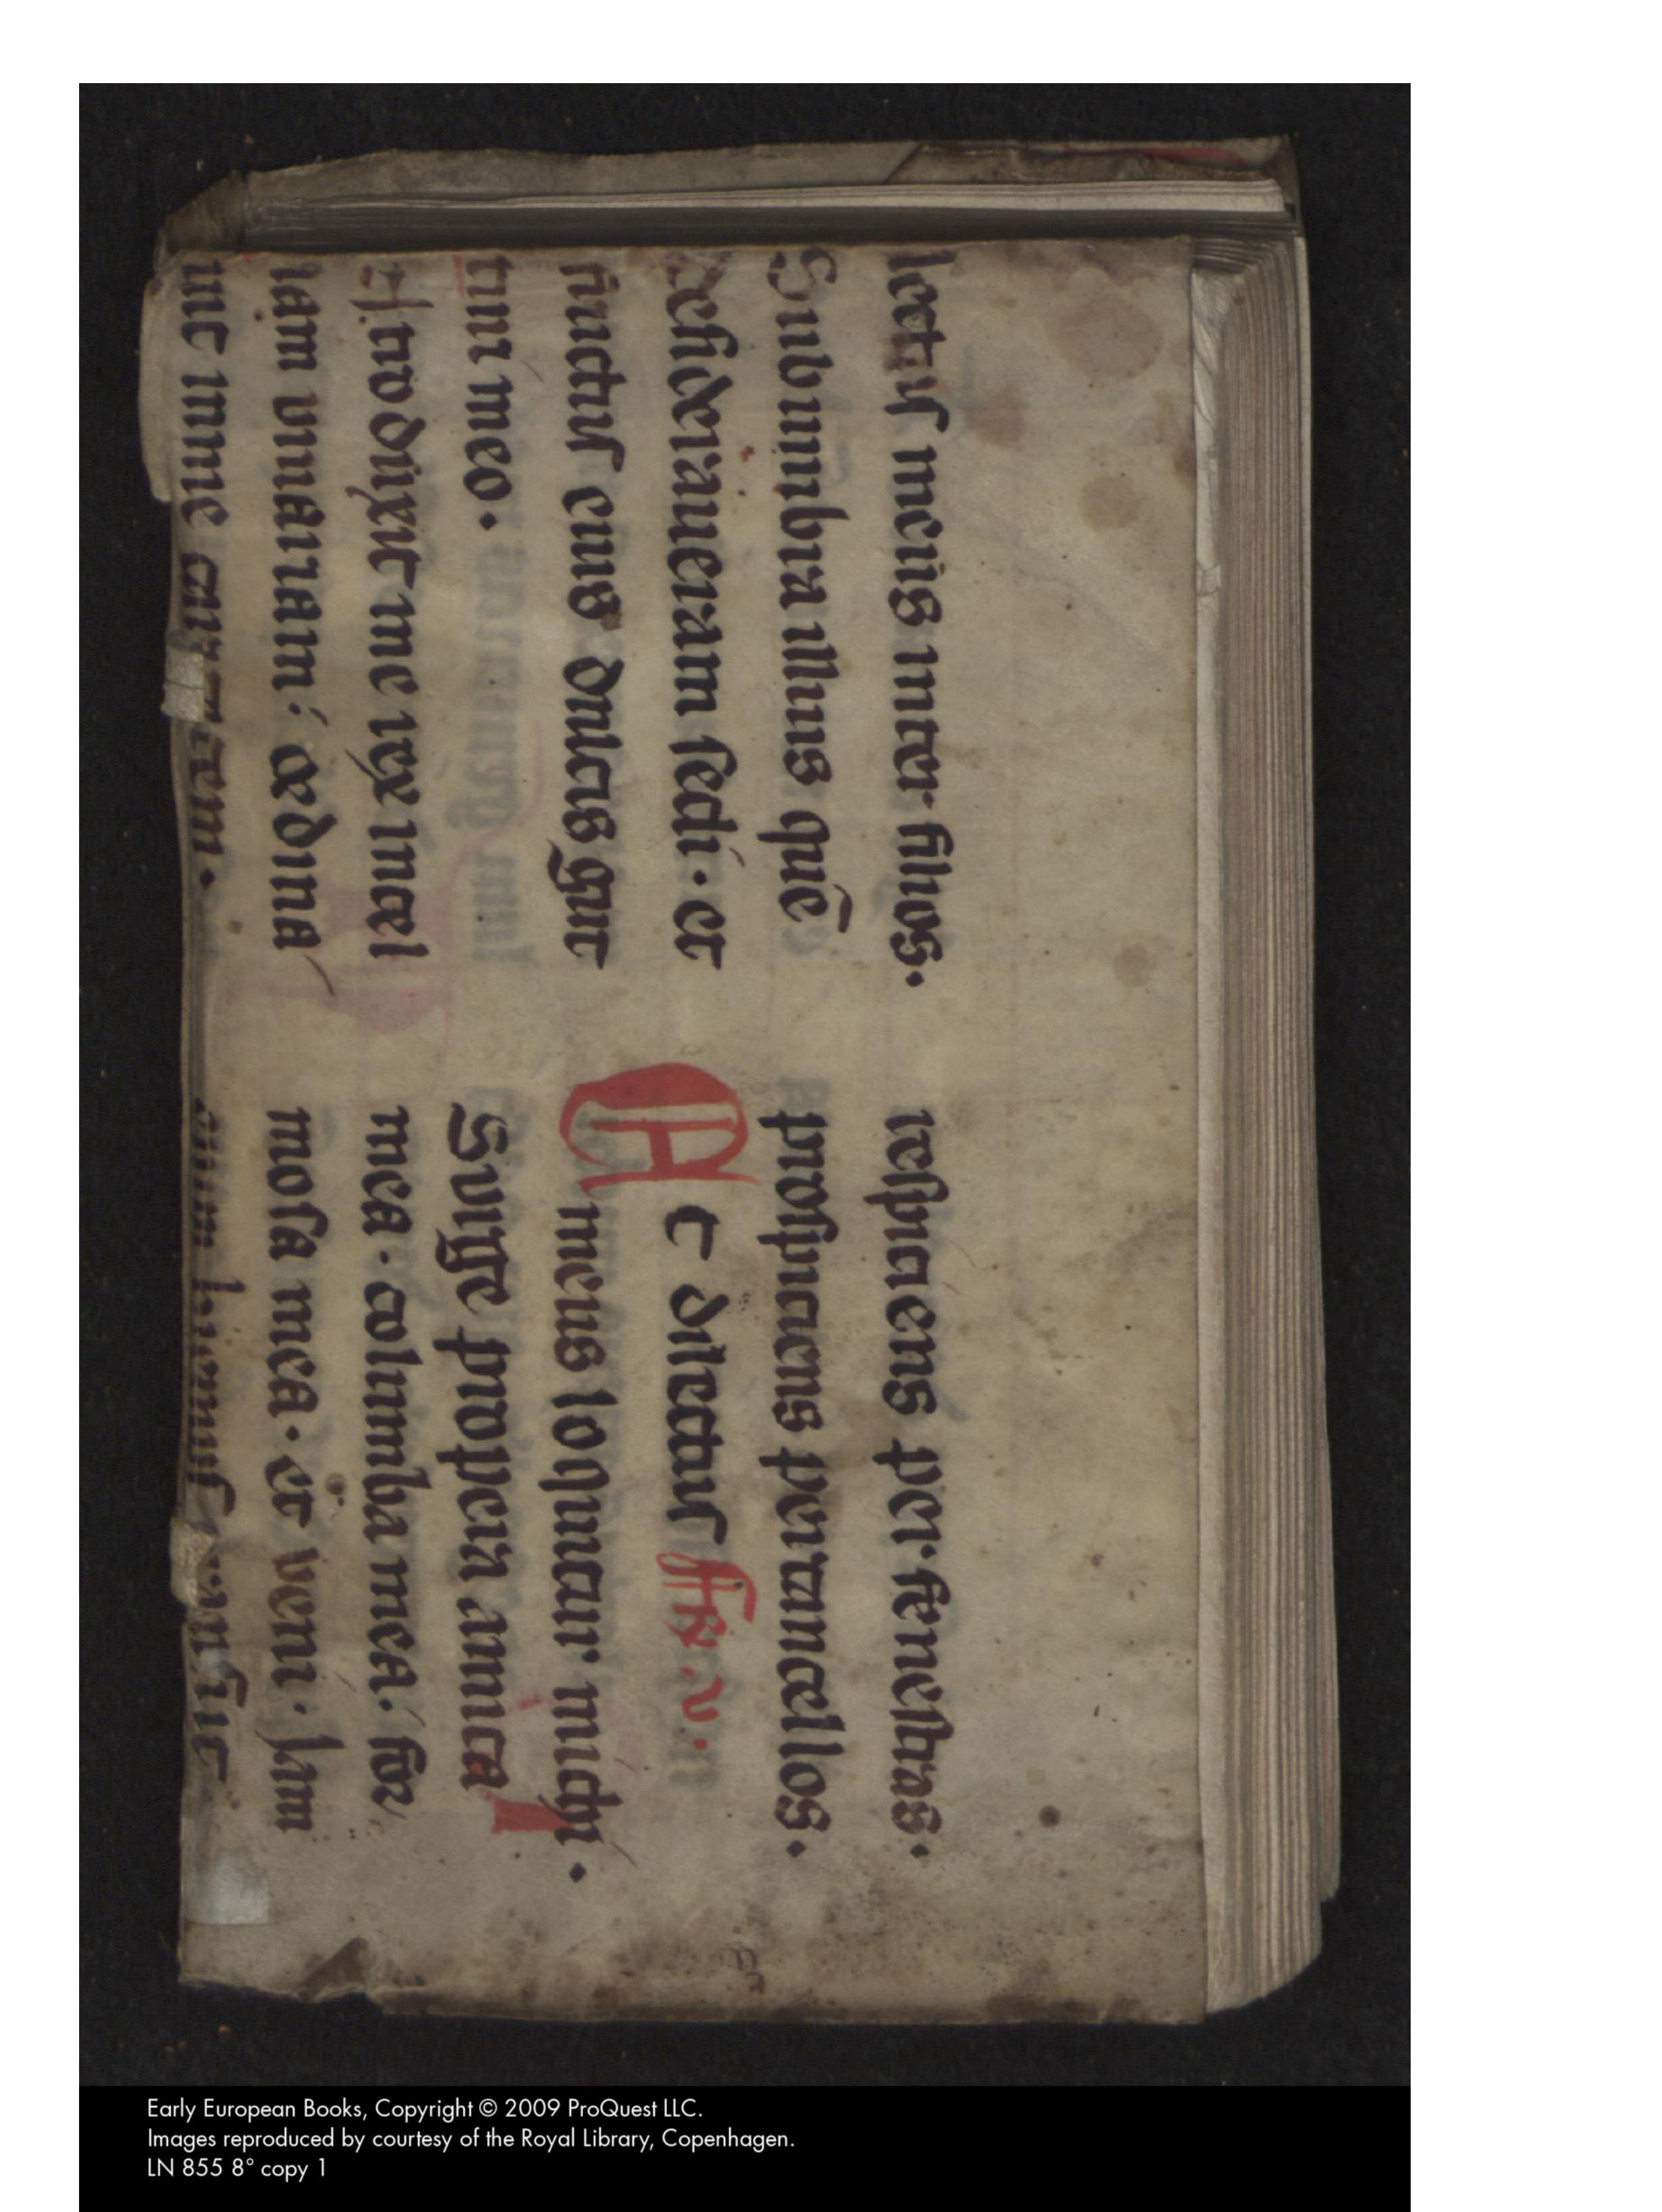 lectuſ meus inter filios.
Sub umbra illius quē
deſideraueram ſedi· et
fructuſ eius dulcis gut
turi meo.
Introduxit me rex in cel
lam uinariam: ordina
uit in me caritatem.
reſpiciens per feneſtras.
proſpiciens per cancellos.
Et dilectuſ
meus loquitur michi.
Surge propera amica
mea· columba mea· for
moſa mea· et veni· Iam
enim hiemſ tranſiit
Early European Books, Copyright © 2009 ProQuest LLC.
Images reproduced by courtesy of the Royal Library, Copenhagen.
LN 855 8° copy 1